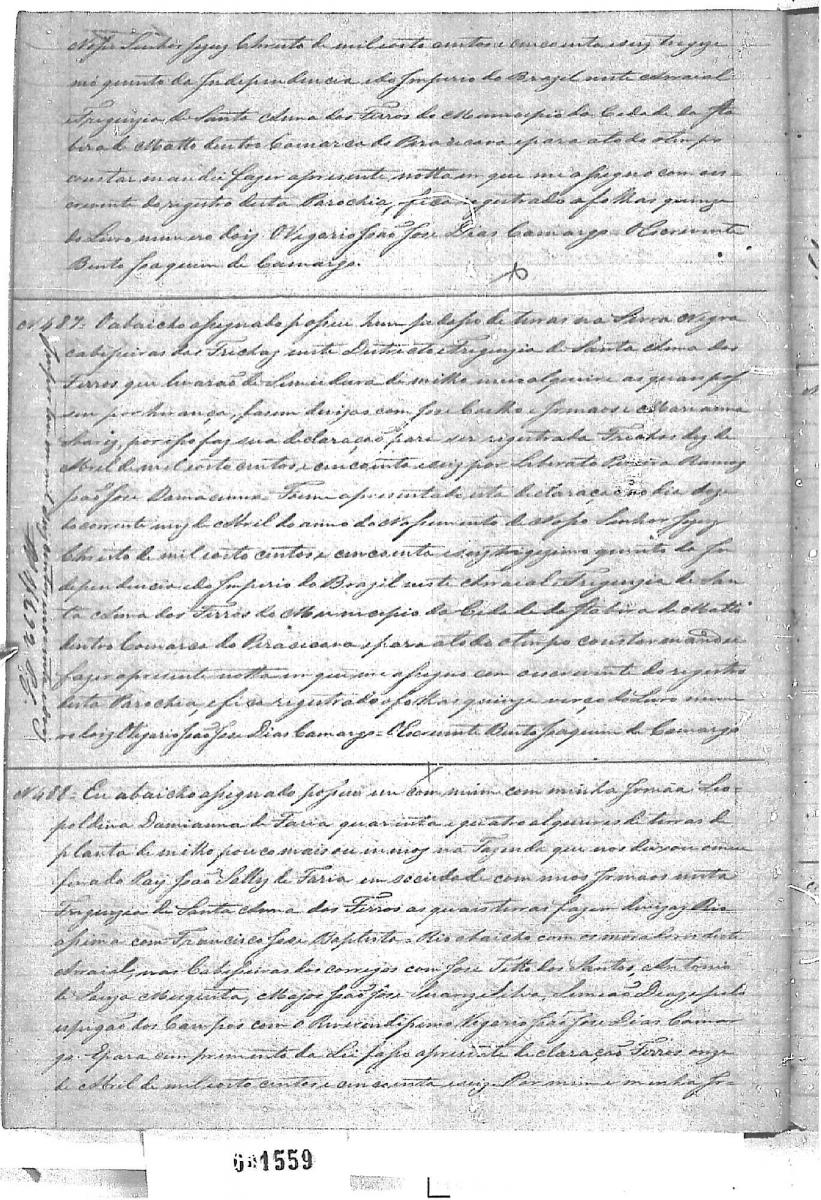 Nosso Senhor Jezuz Christo de mil oito centos e cincoenta e seiz trigezi
mo quinto da Independencia e do Imperio do Brazil neste Arraial
e Freguezia de Santa Anna dos Ferros do Municipio da Cidade da Ita
bira de Matto dentro Comarca do Piracicava e para a todo o tempo
constar mandei fazer a presente notta em que me assigno com o es-
crevente do registro desta Parochia, fica registrado a folhas quinze
do Livro numero doiz. O Vigario João José Dias Camargo = O Escrevente
Bento Joaquim de Camargo.
N 487 = O abaicho assignado possue hum pedasso de terras na Serra Negra
cabeseiras das Frechaz neste Districto e Freguezia de Santa Anna dos
Ferros que levarão de Semeadura de milho meio alqueire as quais pos
sue por herança, fasem divizas com Jose Coelho e Irmaos e Marianna
por isso faz sua declaração para ser registrada Frechas dez de
Abril de mil oito centos e cincoenta e seiz por Liberato Pereira Ramoz
João José Damacenna Foi me apresentada esta declaração no dia doze
do corrente mez de Abril do anno do Nassimento de Nosso Senhor Jezuz
Christo de mil oito centos e cincoenta e seiz trigezimo quinto da In
dependencia e do Imperio do Brazil neste Arraial e Freguezia de San
ta Anna dos Ferros do Municipio da Cidade da Itabira de Matto
dentro Comarca do Piracicava e para a todo o tempo constar mandei
fazer a presente notta em que me assigno com o escrevente do registro
desta Parochia, e fica registrado a folhas quinze verço do Livro nume
ro doiz O Vigario João José Dias Camargo = O Escrevente Bento Joaquim de Camargo
N 488 = Eu abaicho assignado possuo em com mim com minha Irmãa Leo-
poldina Damianna de Faria quarenta e quatro alqueires de terras de
planta de milho, pouco mais ou menoz na Fazenda que nos deixou o meu
finado Pay João de Faria em sociedade com meos Irmaos nesta
Freguezia de Santa Anna dos Ferros as quais terras fazem divizaz Rio
assima com Francisco Jose Baptista = Rio abaicho com os moradores deste
Arraial, nas Cabesseiras dos corregos com Jose Tetto dos Santos, Antonio
de Souza Mesquita, Major João José Silva, Simeão e pelo
espigão dos Campos com o Reverendissimo Vigario João José Dias Camar
go. E para cumpremento da Lei fasso a presente declaração Ferros onze
de Abril de mil oito centos e cincoenta e seiz Por mim e minha Ir=
681559